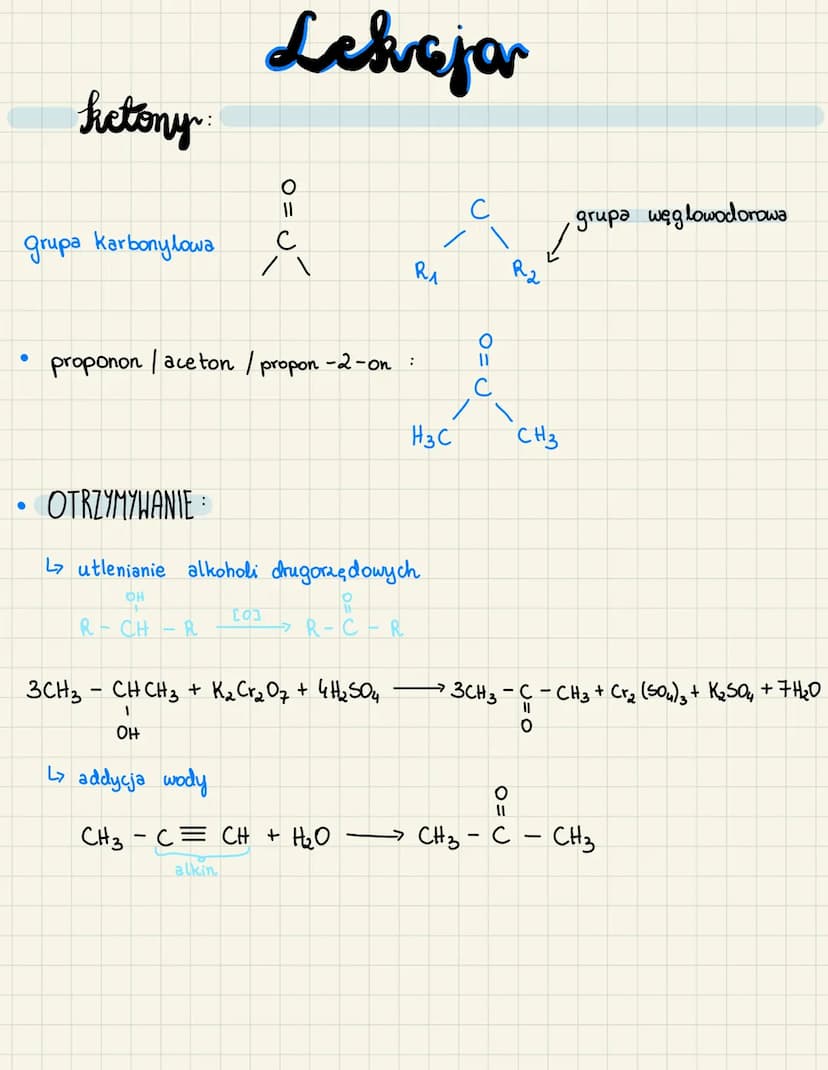 Lekcja
ketony:
O
||
grupa karbonylowa C
/ \
C
/ \
R1 R2
grupa węglowodorowa
• proponon / aceton / propon -2-on :
O
||
C
/ \
H3C CH3
• OTRZYMYWANIE :
↳ utlenianie alkoholi drugorzędowych
OH O
| ||
R - CH - R [O]→ R - C - R
3CH3 - CHCH3 + K2Cr2O7 + 4H2SO4 ⟶ 3CH3 - C - CH3 + Cr2(SO4)3 + K2SO4 + 7H2O
| ||
OH O
↳ addycja wody
O
||
CH3 - C ≡ CH + H2O ⟶ CH3 - C - CH3
alkin